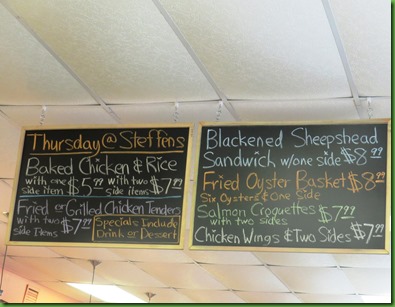 Thursday @ Steffens
Baked Chicken & Rice
with one $5.99 with two $7.99
side item side items
Fried or Grilled Chicken Tenders
with two $7.99
side items
Specials Include
Drink or Dessert
Blackened Sheepshead
Sandwich w/one side $8.99
Fried Oyster Basket $8.99
Six Oysters & One Side
Salmon Croquettes $7.99
with two sides
Chicken Wings & Two Sides $7.99